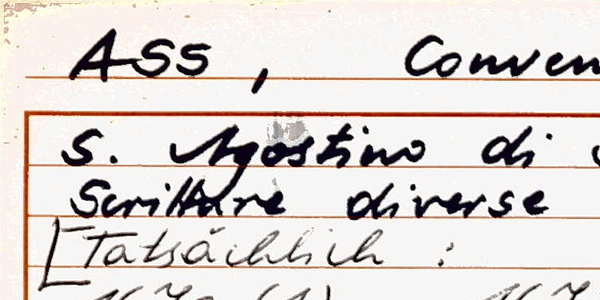 ASS, Conven
S. Agostino di
Scritture diverse
[Tatsächlich :